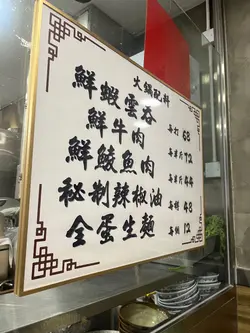 火鍋配料
鮮蝦雲吞 每打 68
鮮牛肉 每半斤 72
鮮鯪魚肉 每半斤 44
秘制辣椒油 每樽 48
全蛋生麵 每個 12